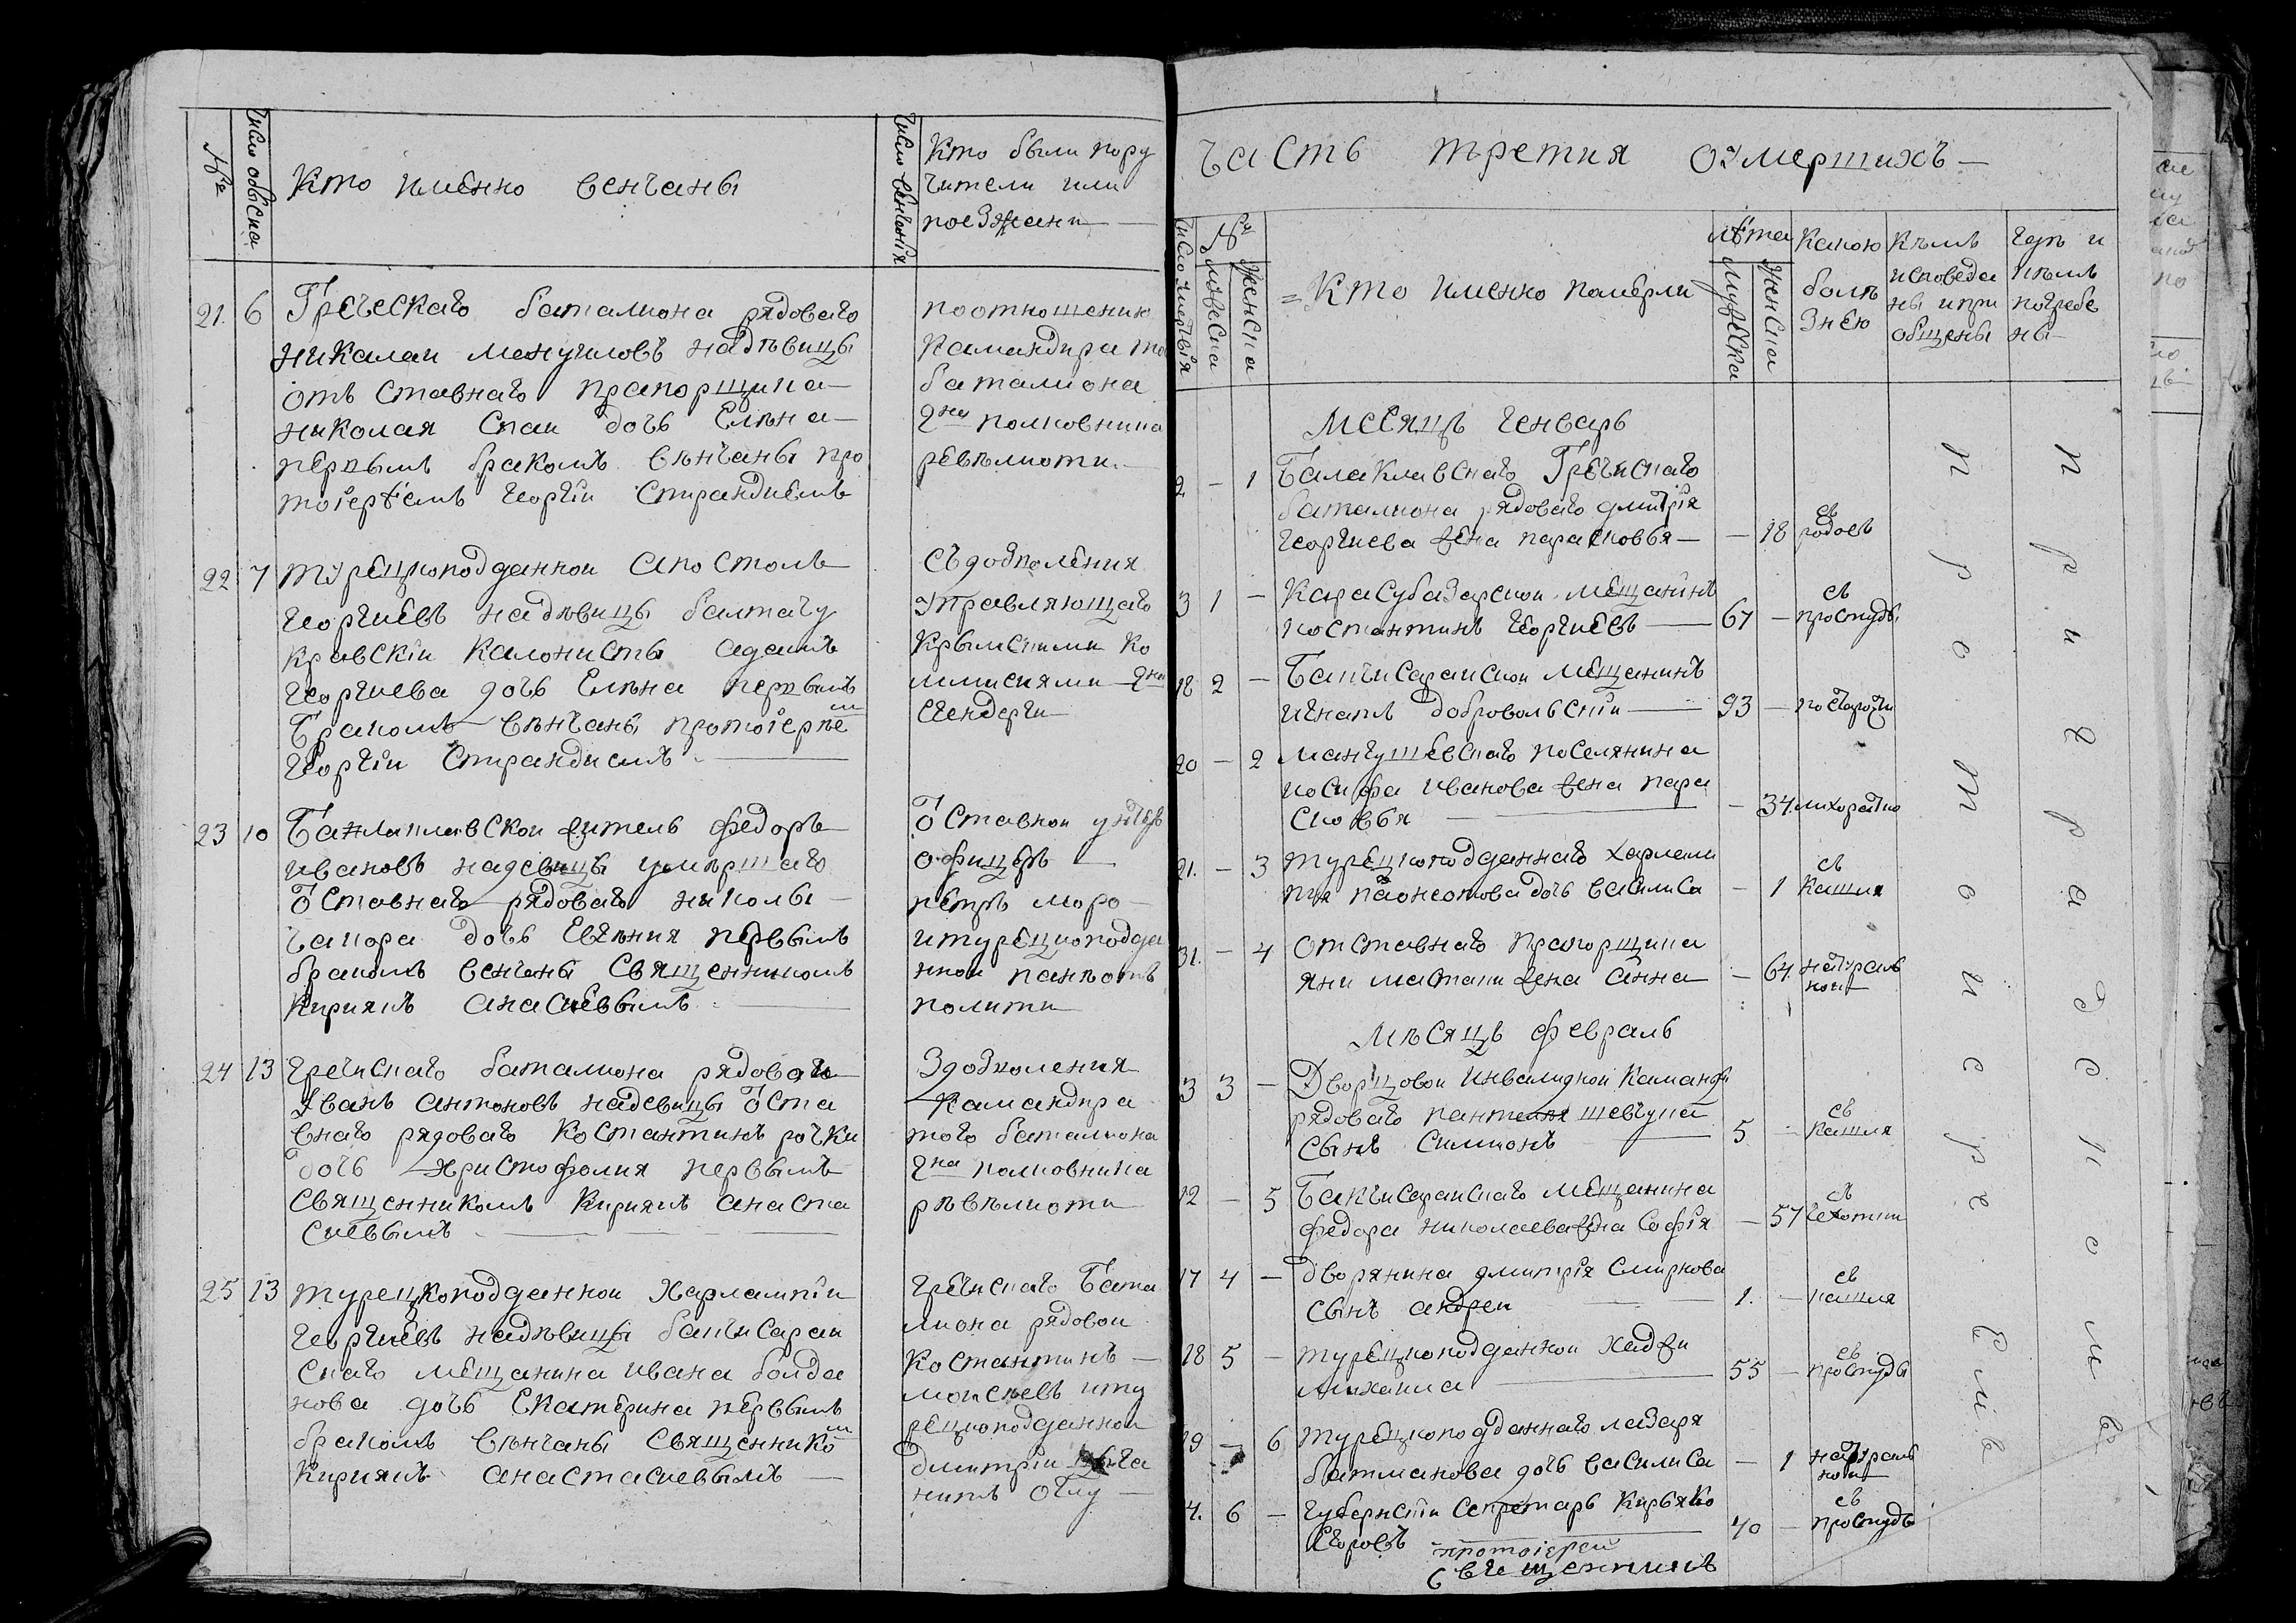 №
Число обыска
Кто именно венчаны
Число венчанія
Кто были пору
чители или
поезжани
21. 6 Греческаго баталиона рядоваго
николаи менуиловъ надѣвицы
отъ ставнаго прапорщика
николая Спаи дочь Елѣна
первымъ бракомъ вѣнчаны про
тоіереемъ георгіи Спирандиемъ
поотношению
камандира то
баталиона
гна полковника
ревѣлиоти
22 7 турецкоподданнои апостолъ
георгиевъ надѣвицы балтачу
кравскіи калонисты
георгиева дочь Елѣна первымъ
бракомъ вѣнчаны протоіерѣе
м
георгіи Спирандиемъ
Съдозволения
управляющаго
крымскими ко
лониями гна
23 10 житель федоръ
ивановъ надевицы умершаго
оставнаго рядоваго николы
дочь Евгѣния первымъ
бракомъ венчаны Священникомъ
Кириякъ анасиевымъ
оставнои унтеръ
офицеръ
петръ моро
итурецкоподда
ннои панѣотъ
полити
24 13 гречискаго баталиона рядоваго
Иванъ антоновъ надевицы оста
внаго рядоваго Костантинъ рочки
дочь христофолия первымъ
Священникомъ Кириякъ анаста
сиевымъ
Здозволения
Камандира
того баталиона
гна полковника
рѣвѣлиоти
25 13 турецкоподданнои Харлампіи
георгиевъ надѣвицы бахчисараи
скаго мещанина ивана болда
нова дочь Екатерина первымъ
бракомъ вѣнчаны Священнико
м
Кириякъ анастасиевымъ
гречискаго бата
лиона рядовои
Костантинъ
моисѣевъ иту
рецкоподданнои
Дмитріи
Часть третия оумершихъ
Число мертвія
№
Мужеска
Женска
Кто именно померли
лѣта
Мужеска
Женска
Какою
болѣ
знею
Кѣмъ
исповеда
ны и при
общены
Гдѣ и
кѣмъ
погребе
ны
Месяцъ генварь
2 - 1 Балаклавскаго Гречискаго
баталиона рядоваго дмитрія
георгиева жена парасковья - 18 съ родовъ
3 1 - Карасубазарскои мещанинъ
костантинъ георгиевъ 67 - съ простуды
18 2 - Бахчисараискои мещанинъ
игнатъ добровольскіи 93 - постарости
20 - 2 мангушевскаго поселянина
иосифа иванова жена пара
сковья - 34. лихоратко
21. - 3 турецкоподданнаго харлами
пия дочь василиса - 1 съ кашля
31. - 4 отставнаго прапорщика
яни мастаки жена анна - 64 натураль
нои
Мѣсяцъ февраль
3 3 - Дворцовои инвалиднои каманды
рядоваго пантелея шевчука
сынъ симионъ 5 - съ кашля
12 - 5 Бахчисараискаго мещанина
федора николаева жена Софія - 57 съ чехотки
17 4 - дворянина дмитрія Смирнова
сынъ андреи 1. - съ кашля
18 5 - турецкоподданнои хаджи
михаила 55 - съ простуды
19 - 6 турецкоподданнаго лазаря
батманова дочь василиса - 1 натураль
нои
4. 6 - губернскіи секретарь Кирьяко
Егоровъ 70 - съ простуды
протоіереемъ
при градскомъ
протоіерей
Священникъ